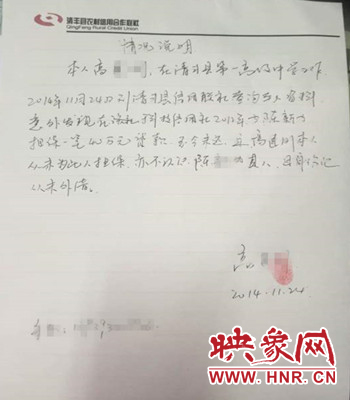 清丰县农村信用合作联社
QingFeng Rural Credit Union
情况说明
本人高 ，在清丰县第一高级中学工作
2014年11月24日到清丰县信用联社查询个人资料
意外发现在 信用社2012年为陈
担保一笔40万元贷款 至今未还 且 本人
从未为他人担保，亦不认识陈 其人，且身份证
从未外借。
高
2014.11.24
映象网
WWW.HNR.CN